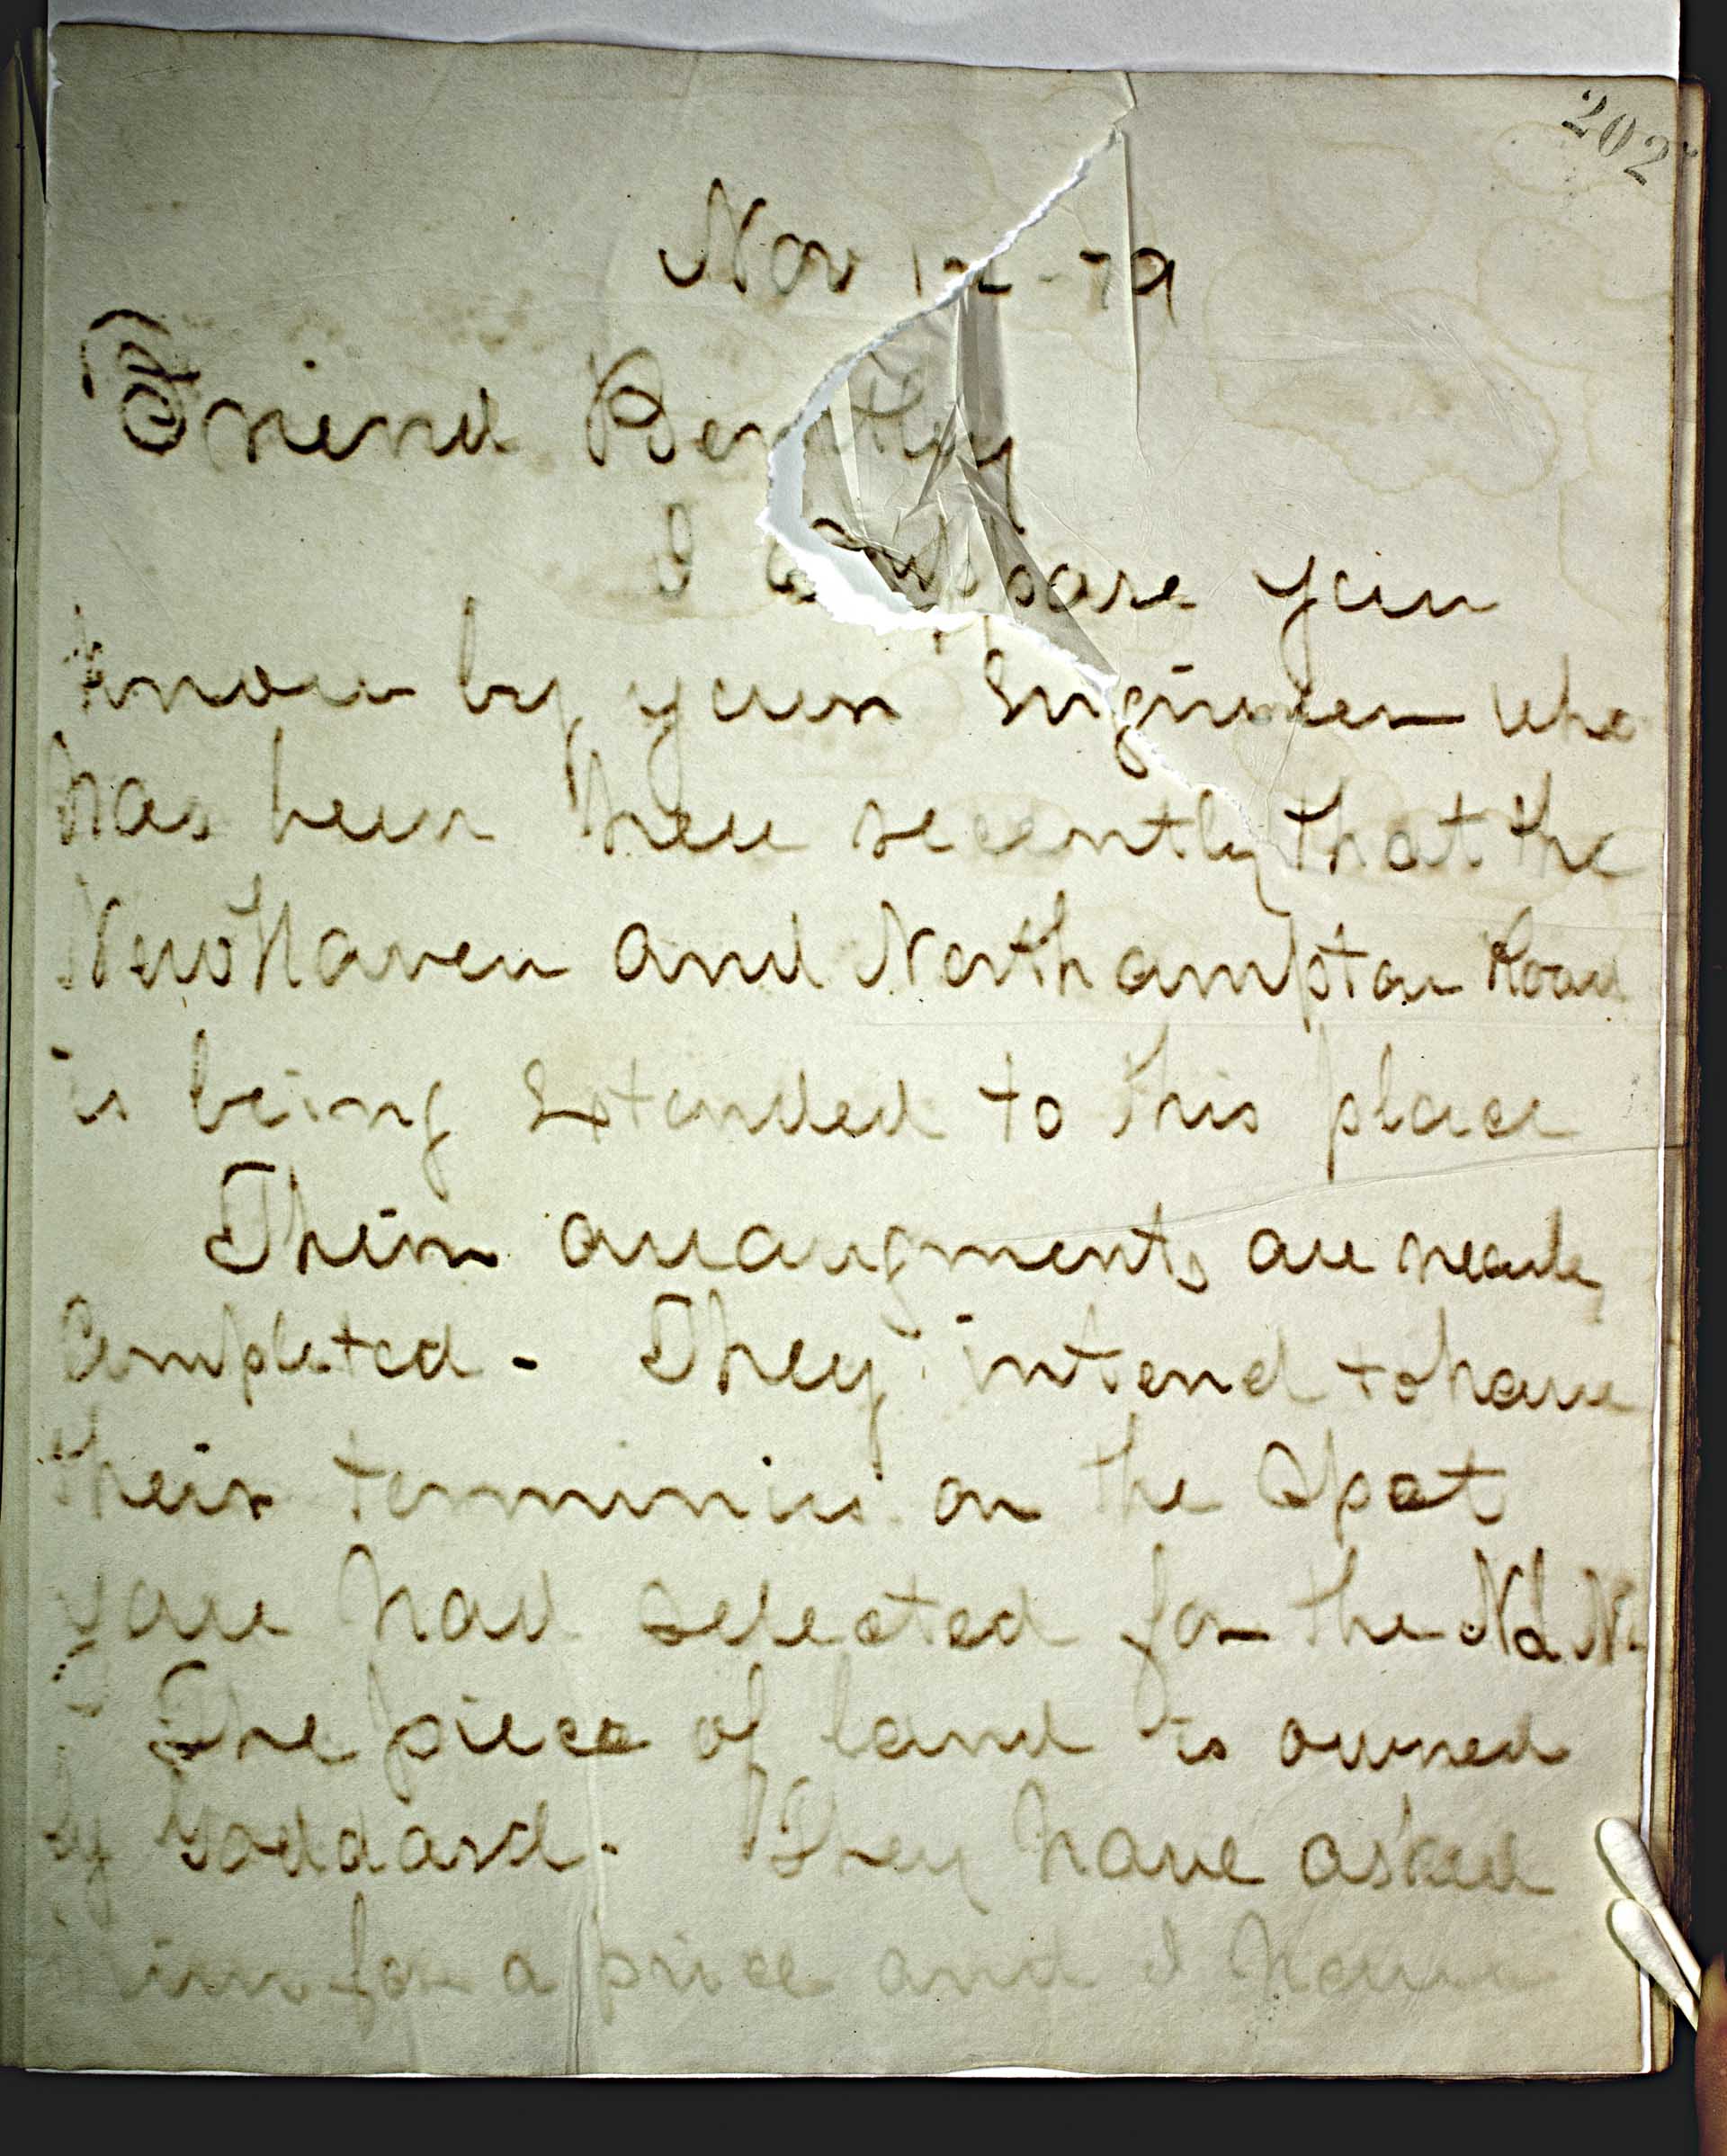 202
Nov 12-79
Friend Bentley
I suppose you
know by your Engineer who
has been here recently that the
New Haven and Northampton Road
is being Extended to this place
Their arraugments are nearly
Completed - They intend to have
their terminus on the Spot
you had selected for the N L N.
The piece of land is owned
by Goddard. They have asked
him for a price and I have